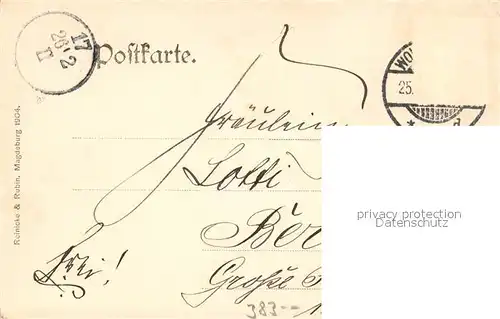 Postkarte.
17
26 2
WO
25.
Fräulein
Lotti
privacy protection
Datenschutz
Frei!
Große
383--
Reinicke & Rubin, Magdeburg 1904.